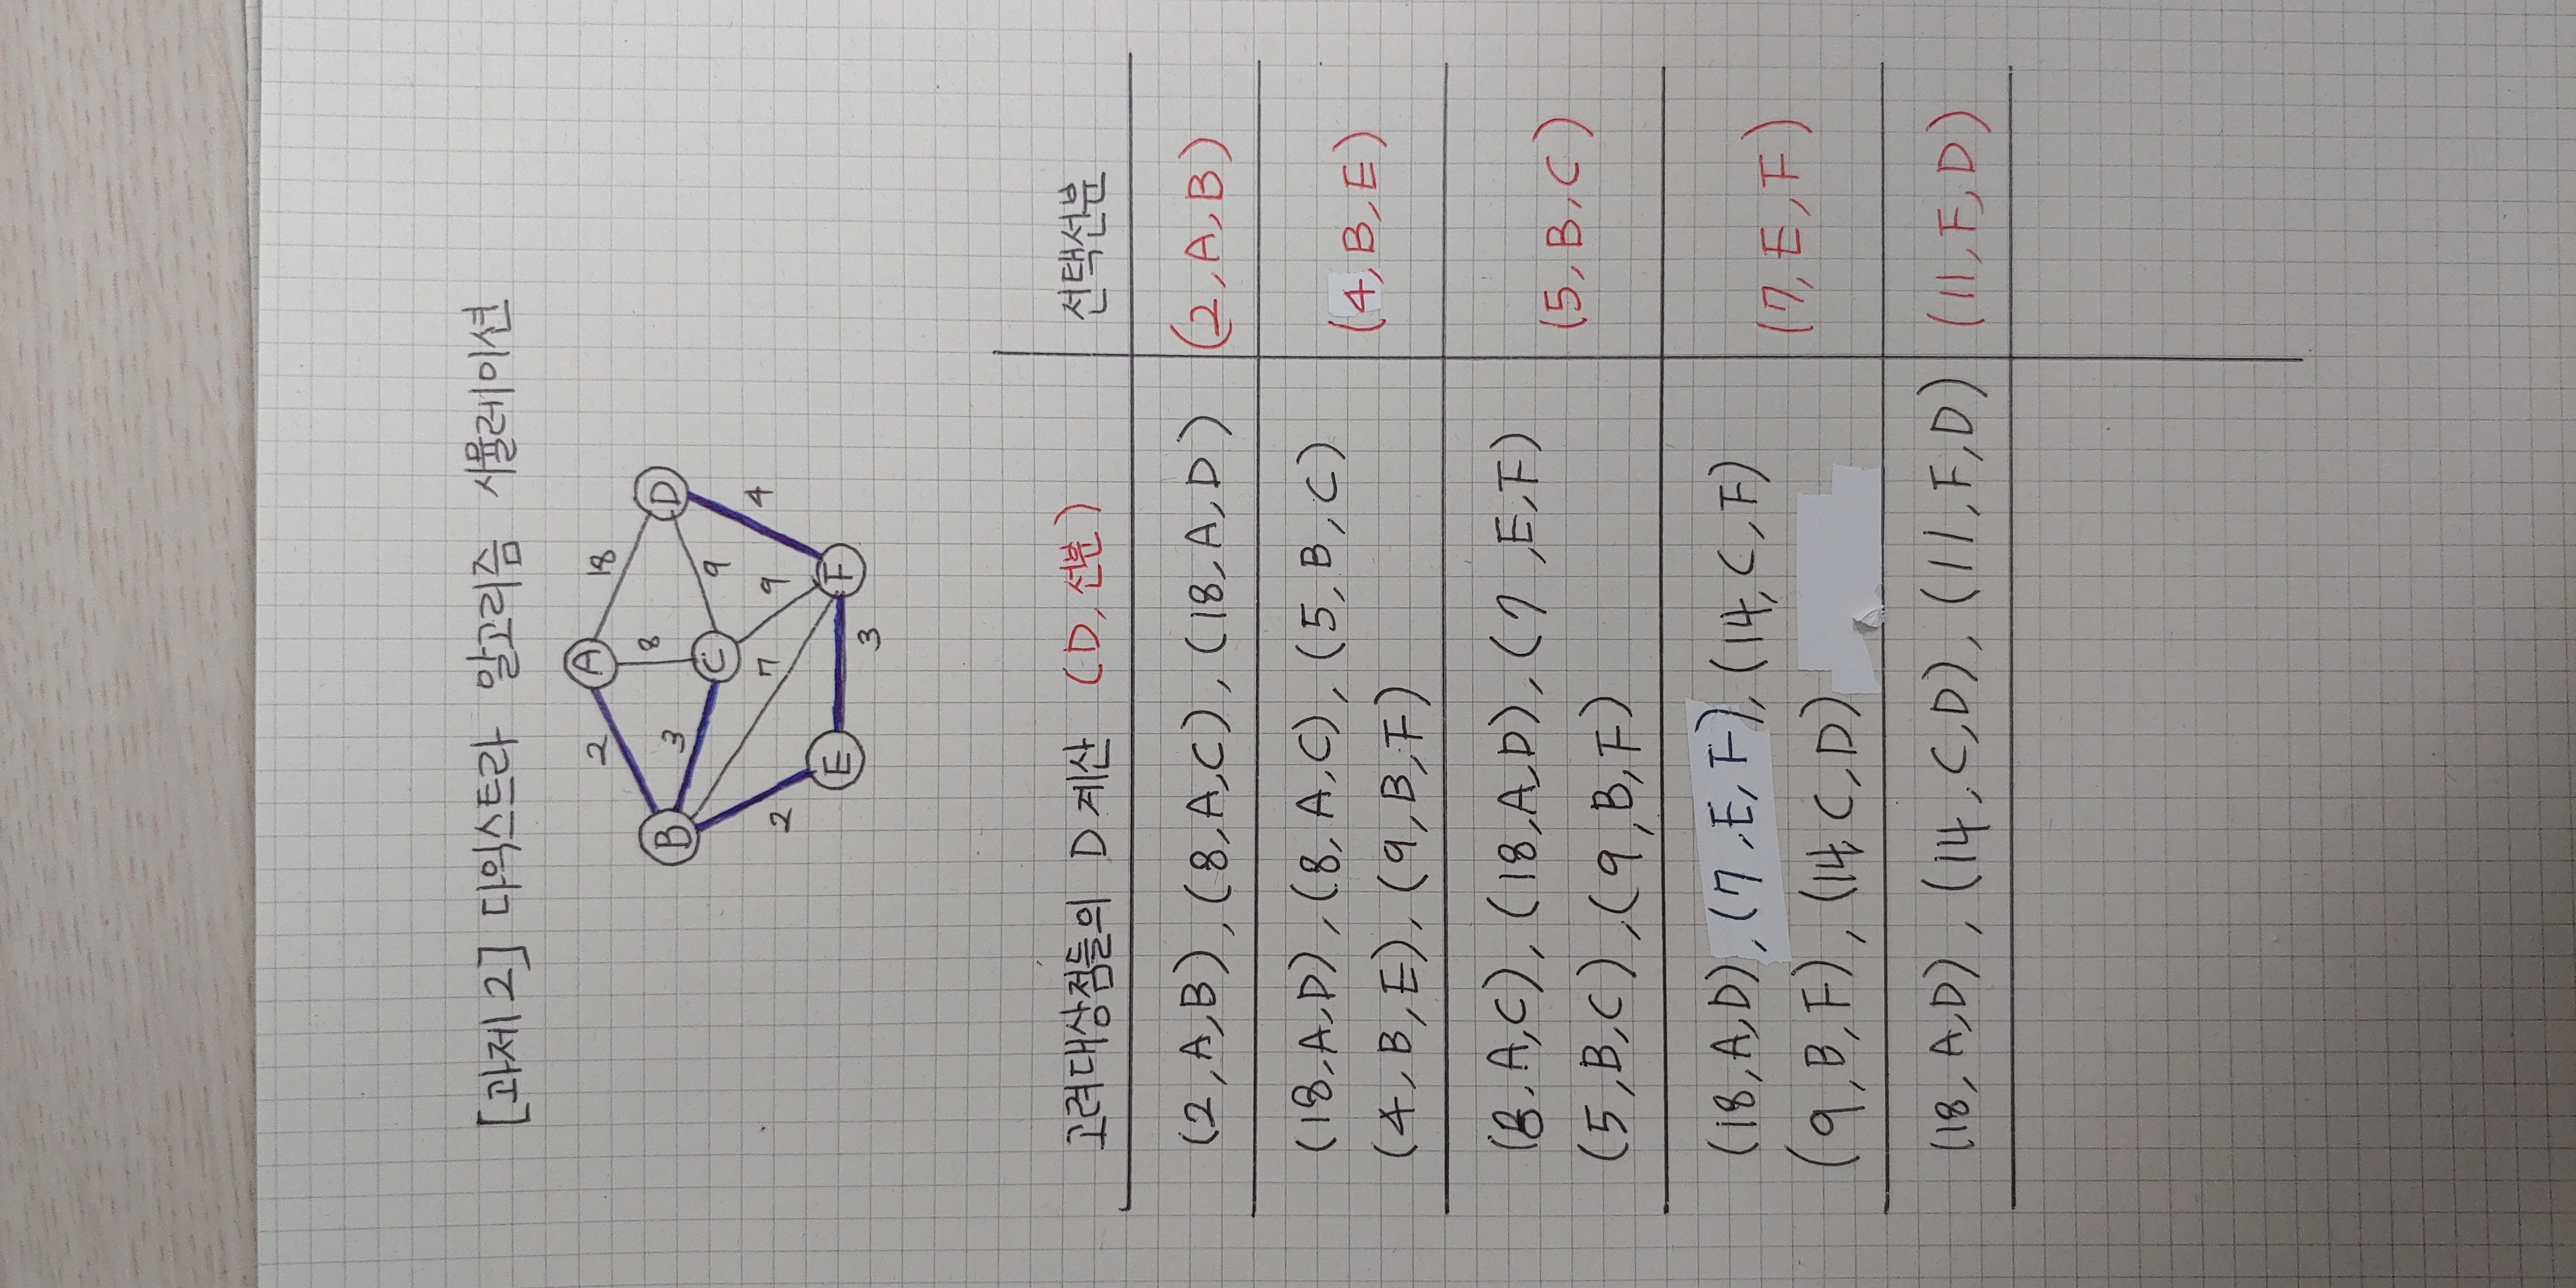 [과제 2] 다익스트라 알고리즘 시뮬레이션
A
2
18
B
8
D
3
C
9
7
9
4
2
E
F
3
고려대상점들의 D 계산 (D, 선분) 선택선분
(2, A, B), (8, A, C), (18, A, D) (2, A, B)
(18, A, D), (8, A, C), (5, B, C)
(4, B, E)
(4, B, E), (9, B, F)
(8, A, C), (18, A, D), (7, E, F)
(5, B, C)
(5, B, C), (9, B, F)
(18, A, D), (7, E, F), (14, C, F)
(7, E, F)
(9, B, F), (14, C, D)
(18, A, D), (14, C, D), (11, F, D) (11, F, D)